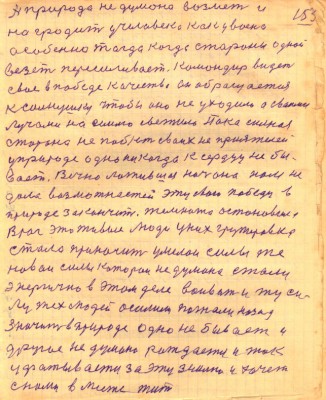 153
А природа не думана возмет и
на сродит у человека как двоена
особенно тогда когда старони одной
везет пересиливает. Командир видет
свое в победе качество он обращается
к саинушку чтобы оно не уходило а сваими
лучами на слимо светило Пака сильная
старона не побют сваих не приятелей
у природе одно никогда к серцу не бы-
вает. Вечно ложившая начана поля не
дала возможностей эту свою победу в
природе закончит. темната остановела
Враг это живые люди у них групировка
стала приначит умелои силы же
новаи силы катораи не думана стали
энергично в этом деле воиват и ту си-
лу тех людей осилили пагнали назад
Значить в природе одно не бывает и
другое не думано раждается и так
удать за эту знание и хочет
снами в месте жит